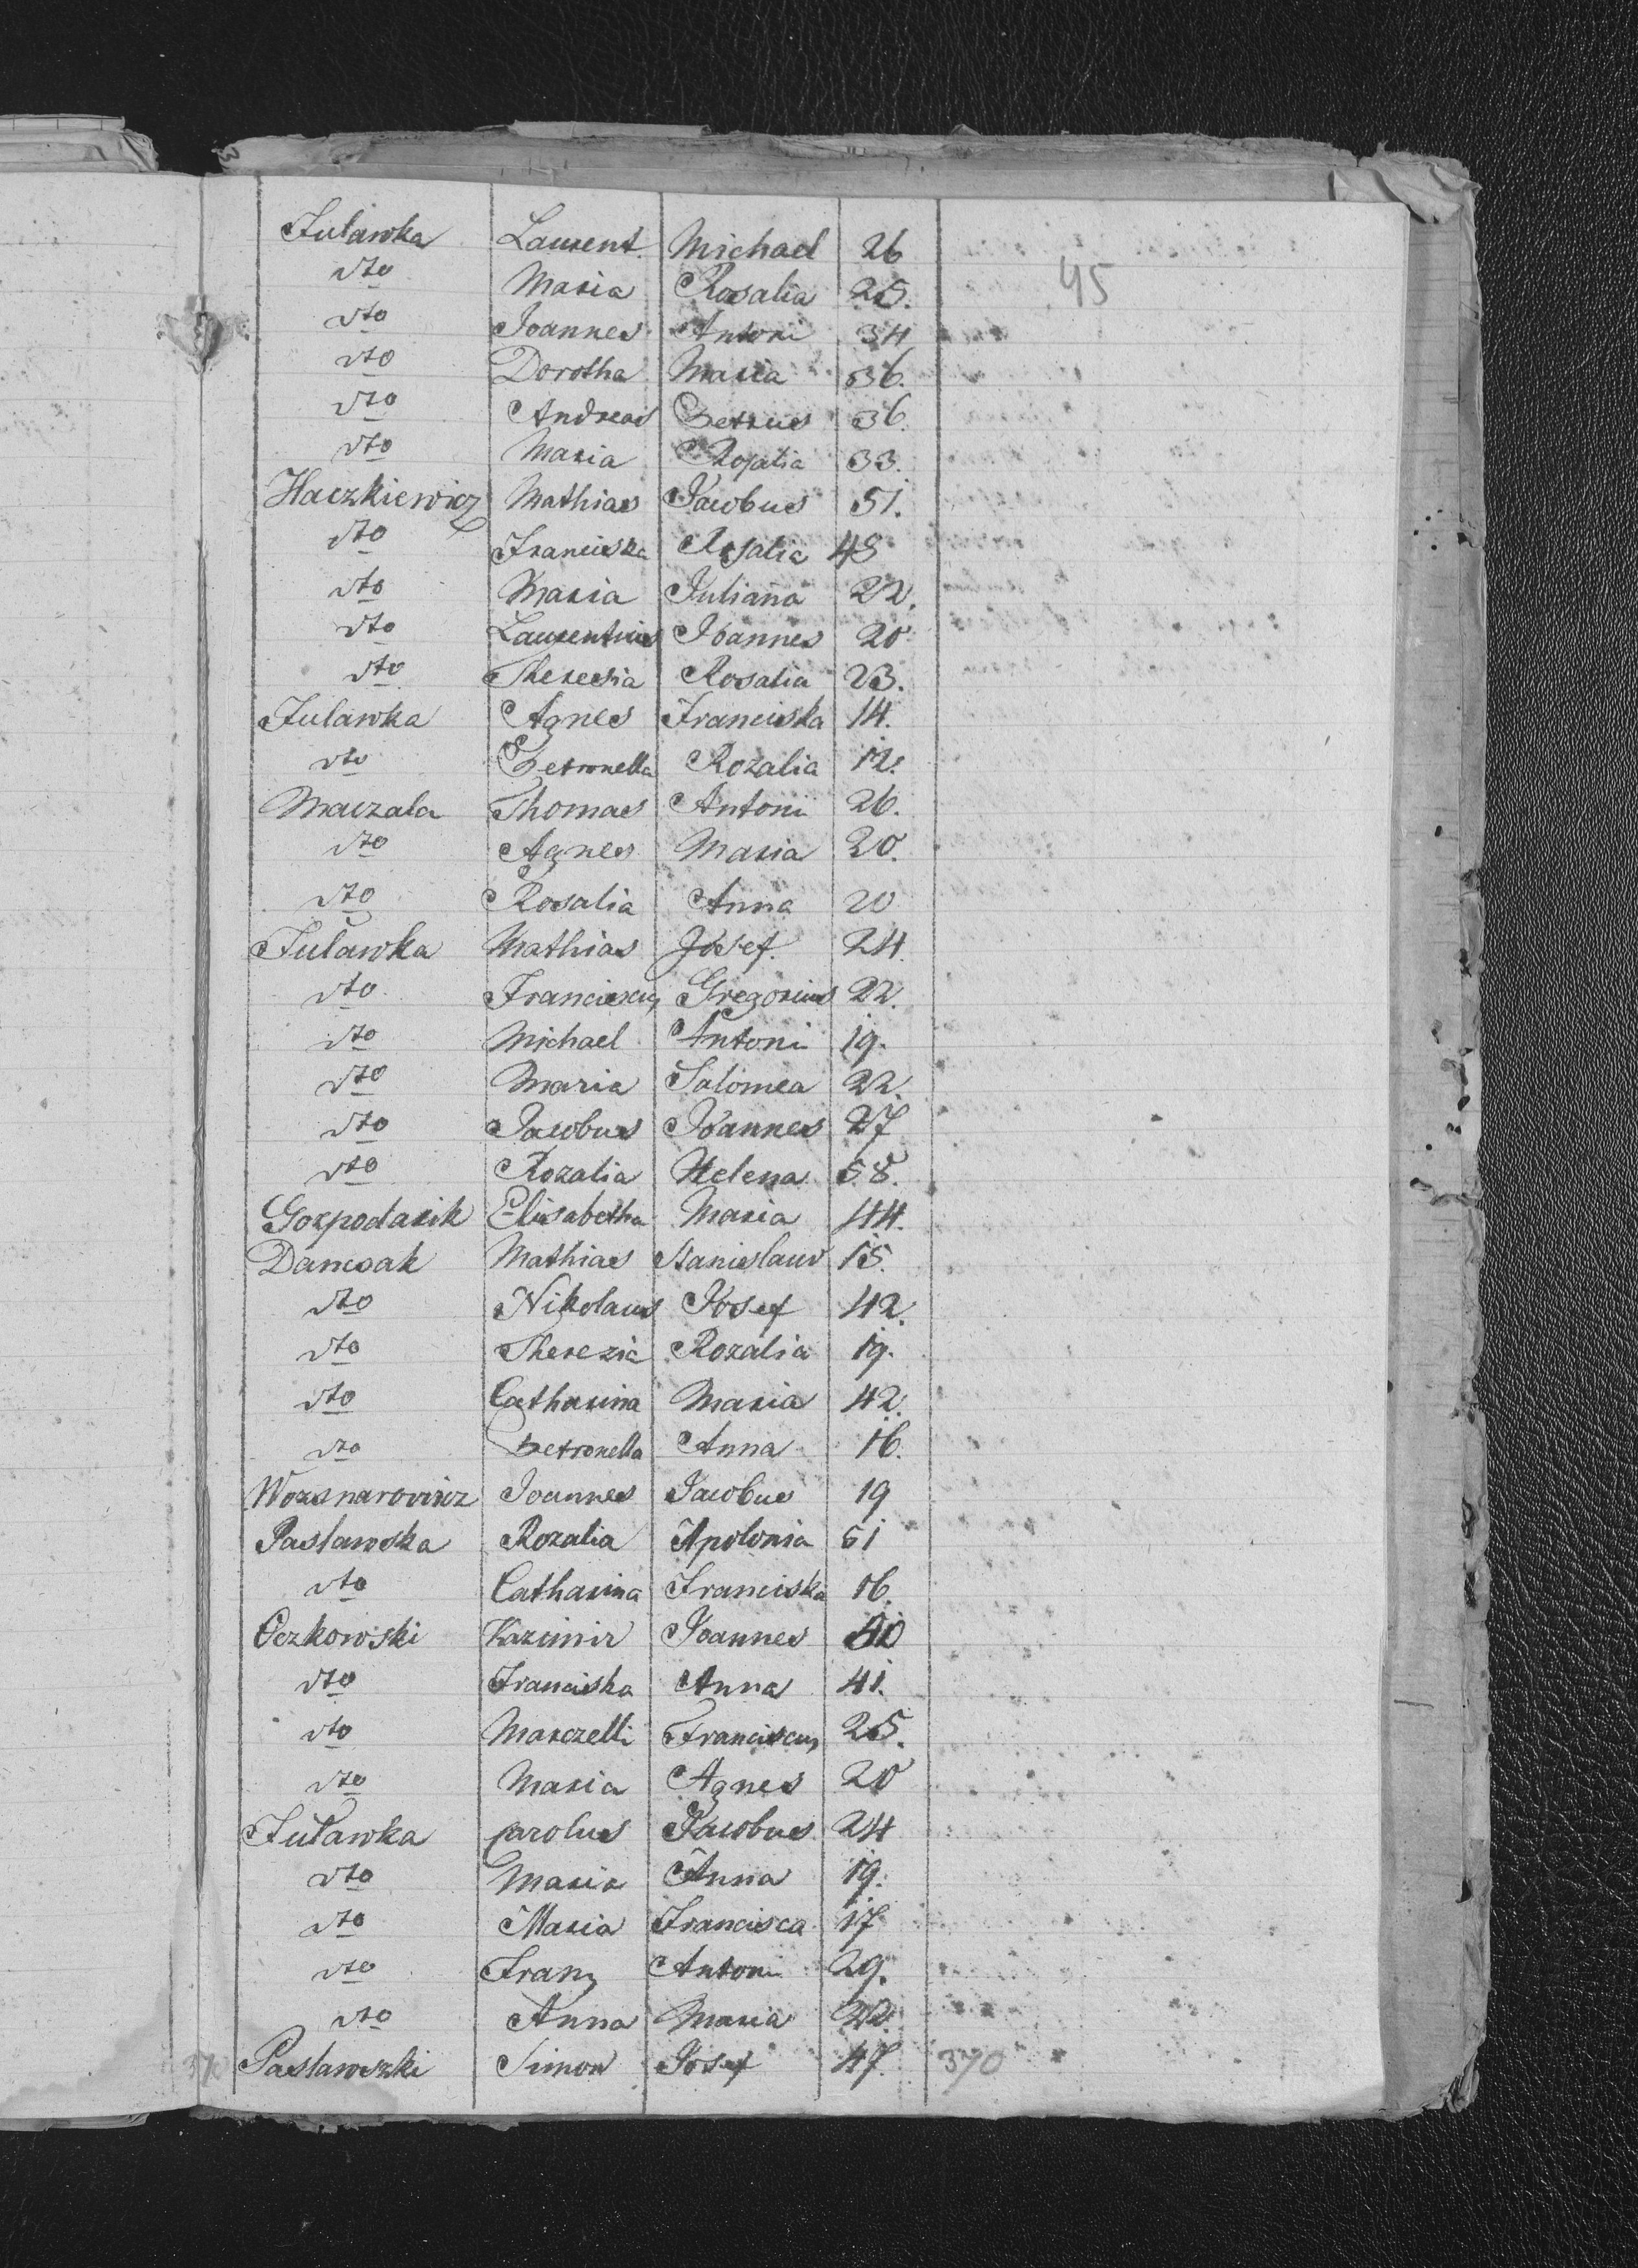 Julawka Laurent. Michael 26
dto Maria Rosalia 25. 45
dto Joannes Antoni 34
dto Dorotha Maria 36.
dto Andreas Petrus 36.
dto Maria Rosalia 33.
Haczkiewicz Mathias Jacobus 51.
dto Franciska Rosalia 48
dto Maria Juliana 22.
dto Laurentius Joannes 20
dto Theresia Rosalia 23.
Julawka Agnes Franciska 14.
dto Petronella Rozalia 12.
Maczala Thomas Antoni 26.
dto Agnes Maria 20.
dto Rosalia Anna 20
Julawka Mathias Josef. 24.
dto Franciscus Gregorius 22.
dto Michael Antoni 19.
dto Maria Salomea 22.
dto Jacobus Joannes 27
dto Rozalia Helena 58.
Gospodarik Elisabetha Maria 44.
Dancsak Mathias Stanislaus 15.
dto Nikolaus Josef 42.
dto Therezia Rozalia 19.
dto Catharina Maria 42.
dto Petronella Anna 16.
Wozsnarovicz Joannes Jacobus 19
Paslawska Rozalia Apolonia 51
dto Catharina Franciska 16.
Oczkowski Kazimir Joannes
dto Franciska Anna 41.
dto Marczelli Franciscus 25.
dto Maria Agnes 20
Julawka Carolus Jacobus 24
dto Maria Anna 19.
dto Maria Francisca 17
dto Franz Antoni 29.
dto Anna Maria 22
370 Paslawszki Simon Josef 47. 370